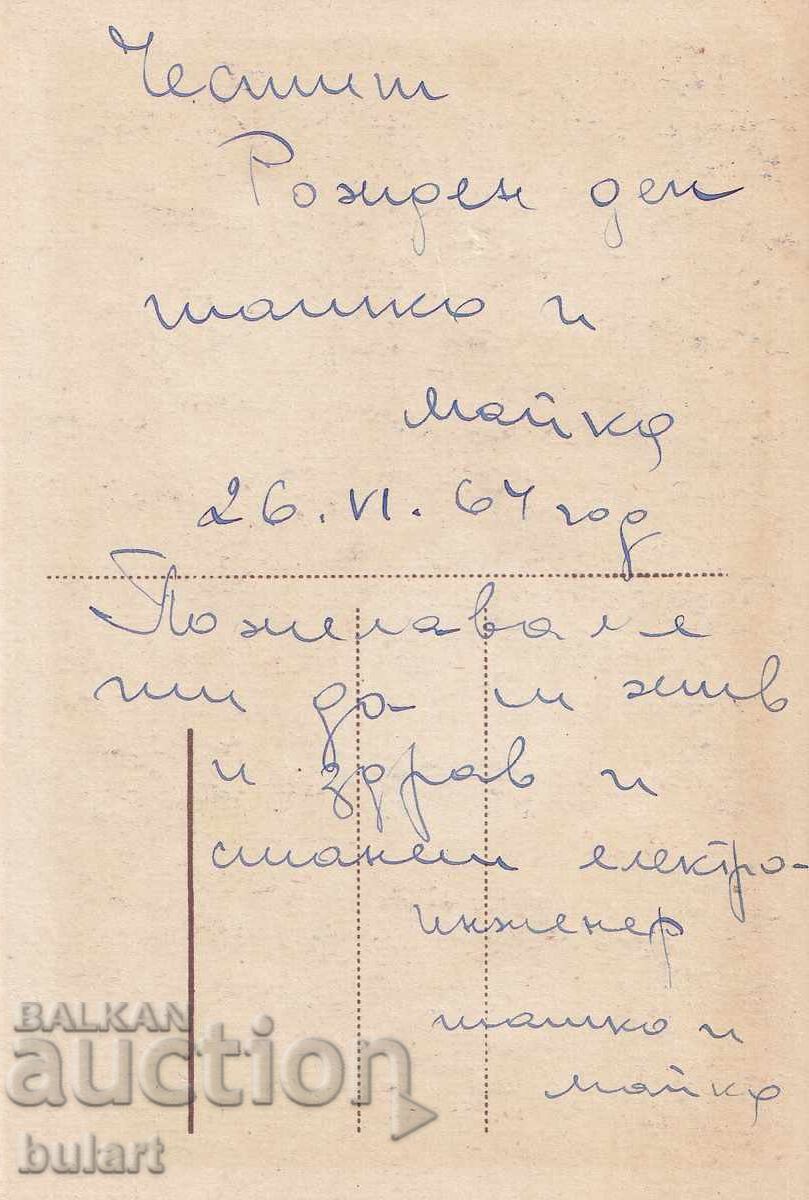 Честит
Рожден ден
татко и
майка
26.VI.64 год
Пожелаваме
ти да си жив
и здрав и
станеш електро-
инженер
татко и
майка
BALKAN
auction
bulart